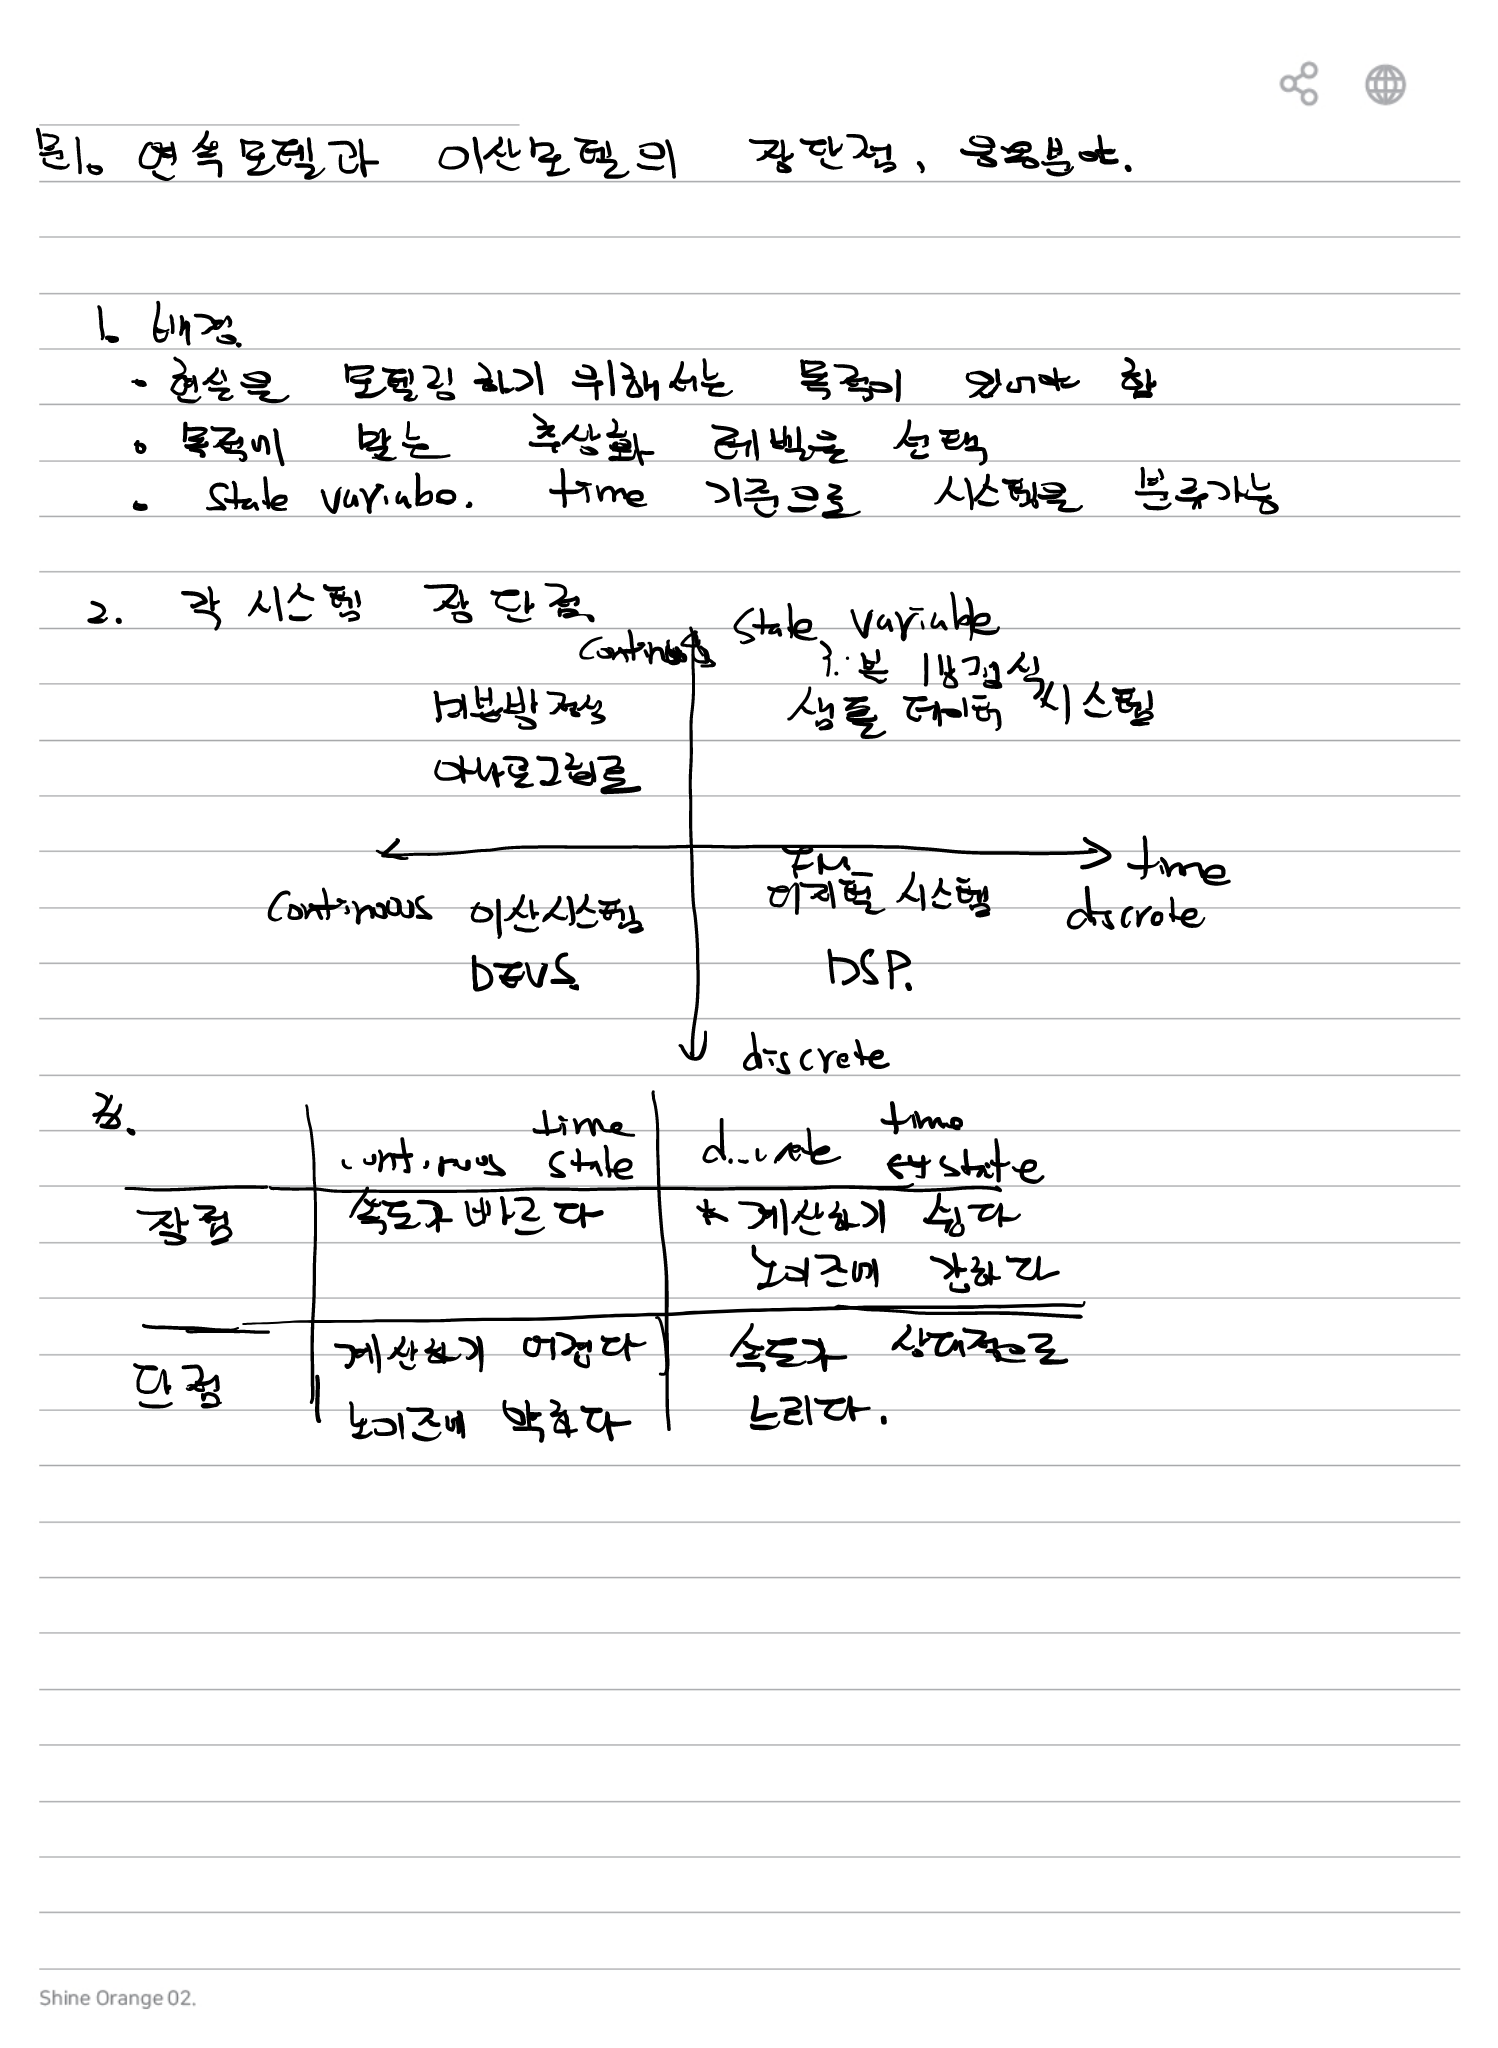 문1. 연속모델과 이산모델의 장단점, 응용분야.
1. 배경.
• 현실을 모델링하기 위해서는 목적이 있어야 함
• 목적에 맞는 추상화 레벨을 선택
• state variabe. time 기준으로 시스템을 분류가능
2. 각 시스템 장단점.
continuous
state variable
미분방정식
아나로그회로
차분방정식
샘플데이터 시스템
time
continuous
이산시스템
DEVS.
디지털 시스템
DSP.
discrete
discrete
continuous time state
discrete time state
장점
속도가 빠르다
* 계산하기 쉽다
노이즈에 강하다
단점
계산하기 어렵다
노이즈에 약하다
속도가 상대적으로
느리다.
Shine Orange 02.